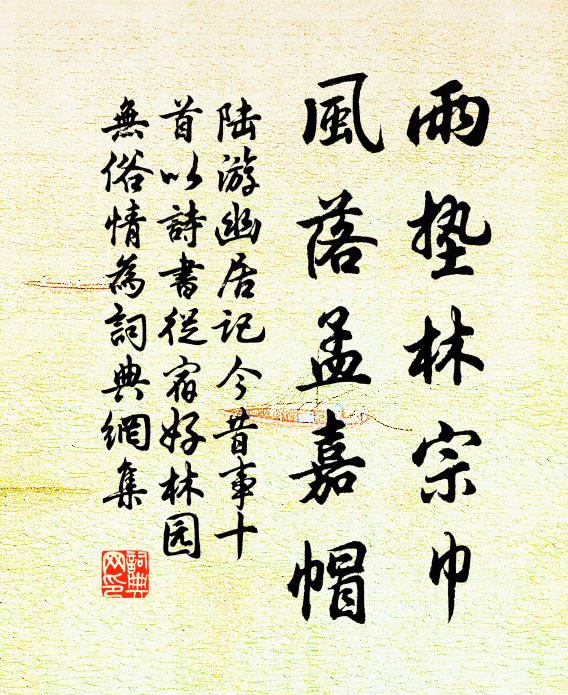 雨墊林宗巾
風落孟嘉帽
陆游幽居记今昔事十
首以詩書從宿好林园
無俗情為詞典網集
詞典
网印